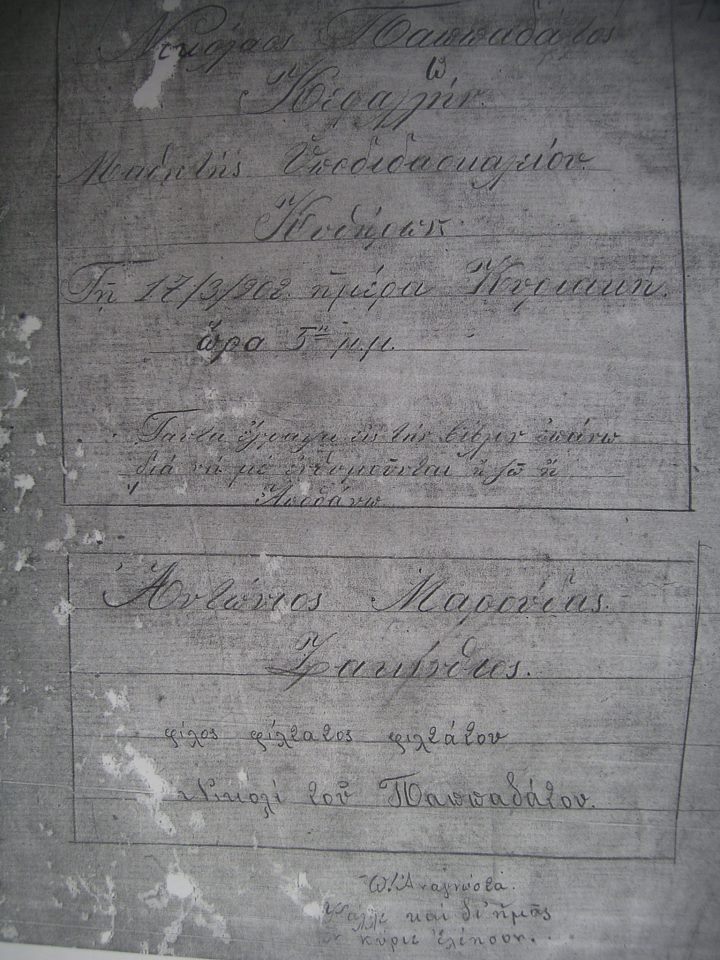 Νικόλαος Παππαδάτος
Κεφαλλήν
Μαθητής Ὑποδιδασκαλείου
Κυθήρων.
Τῇ 17/3/902 ἡμέρα Κυριακῇ.
ὥρα 5ῃ μ.μ.
Ταῦτα ἔγραψα εἰς τὴν ἐπάνω
διὰ νὰ μὲ ἐνθυμοῦνται ἢ ζῶ ἢ
Ἀποθάνω
Ἀντώνιος Μαρούδας.
Ζακύνθιος.
φίλος φίλτατος φιλτάτου
Νικολῆ τοῦ Παππαδάτου.
Ὦ! Ἀναγνῶστα.
Ψάλλε καὶ δι' ἡμᾶς
κύριε ἐλέησον.